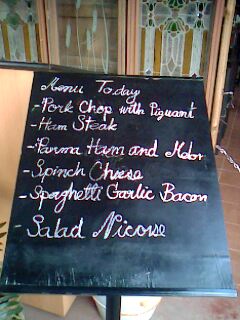 Menu Today
- Pork Chop with Piquant
- Ham Steak
- Parma Ham and Melor
- Spinch Cheese
- Sperghetti Garlic Bacon
- Salad Nicose